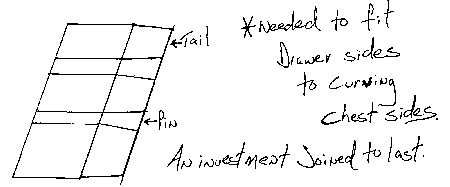 ←Tail
*Needed to fit
Drawer sides
to curving
chest sides.
←Pin
An investment Joined to last.